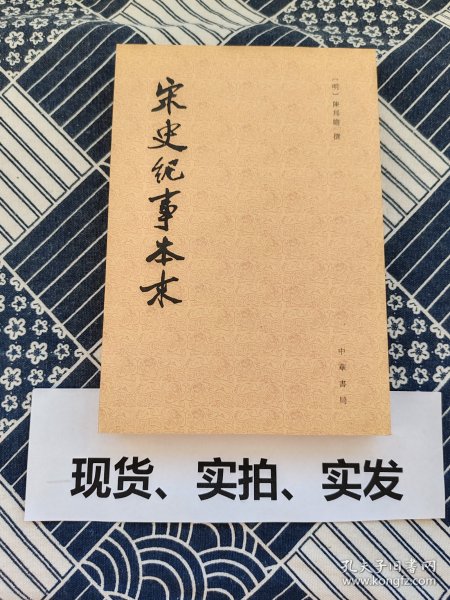 宋史紀事本末
〔明〕陳邦瞻 撰
中華書局
现货、实拍、实发
孔夫子旧书网
www.kongfz.com